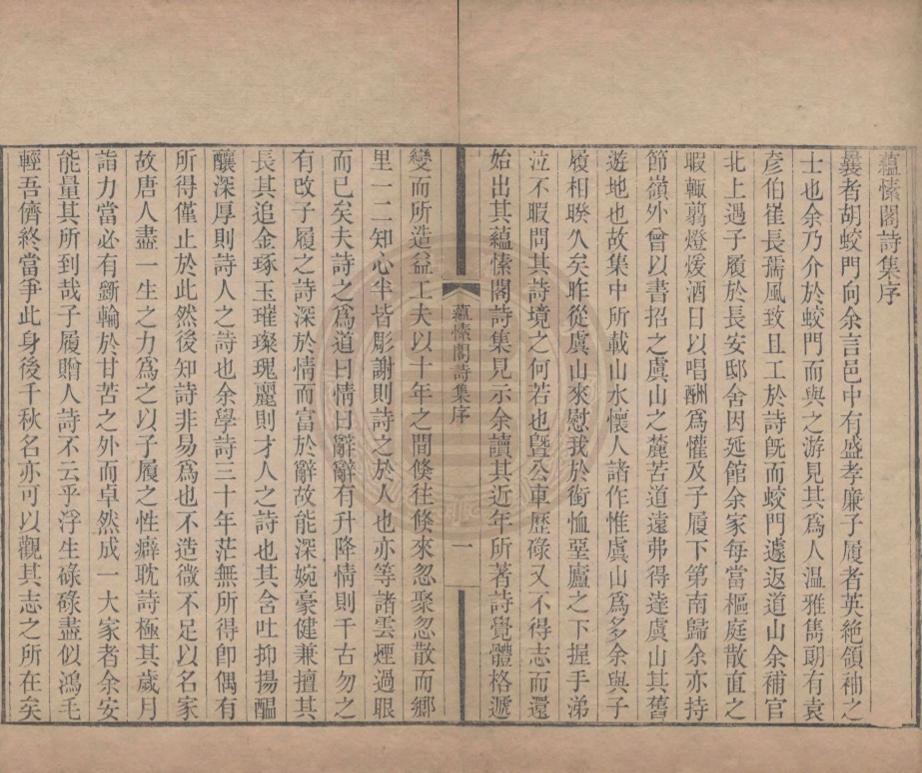 蘊愫閣詩集序
曩者胡蛟門向余言邑中有盛孝廉子履者英絶領袖之
士也余乃介於蛟門而與之游見其爲人温雅雋朗有袁
彦伯崔長孺風致且工於詩旣而蛟門遽返道山余補官
北上遇子履於長安邸舍因延館余家每當樞庭散直之
暇輒翦燈煖酒日以唱酬爲懽及子履下第南歸余亦持
節嶺外曾以書招之虞山之麓苦道遠弗得達虞山其舊
遊地也故集中所載山水懷人諸作惟虞山爲多余與子
履相睽久矣昨從虞山來慰我於銜恤堊廬之下握手涕
泣不暇問其詩境之何若也曁公車歷碌又不得志而還
始出其蘊愫閣詩集見示余讀其近年所著詩覺體格遞
蘊愫閣詩集序
一
變而所造益工夫以十年之間倏往倏來忽聚忽散而鄉
里一二知心半皆彫謝則詩之於人也亦等諸雲煙過眼
而已矣夫詩之爲道曰情曰辭辭有升降情則千古勿之
有改子履之詩深於情而富於辭故能深婉豪健兼擅其
長其追金琢玉璀璨瑰麗則才人之詩也其含吐抑揚醞
釀深厚則詩人之詩也余學詩三十年茫無所得卽偶有
所得僅止於此然後知詩非易爲也不造微不足以名家
故唐人盡一生之力爲之以子履之性癖耽詩極其歲月
詣力當必有斵輪於甘苦之外而卓然成一大家者余安
能量其所到哉子履贈人詩不云乎浮生碌碌盡似鴻毛
輕吾儕終當爭此身後千秋名亦可以觀其志之所在矣